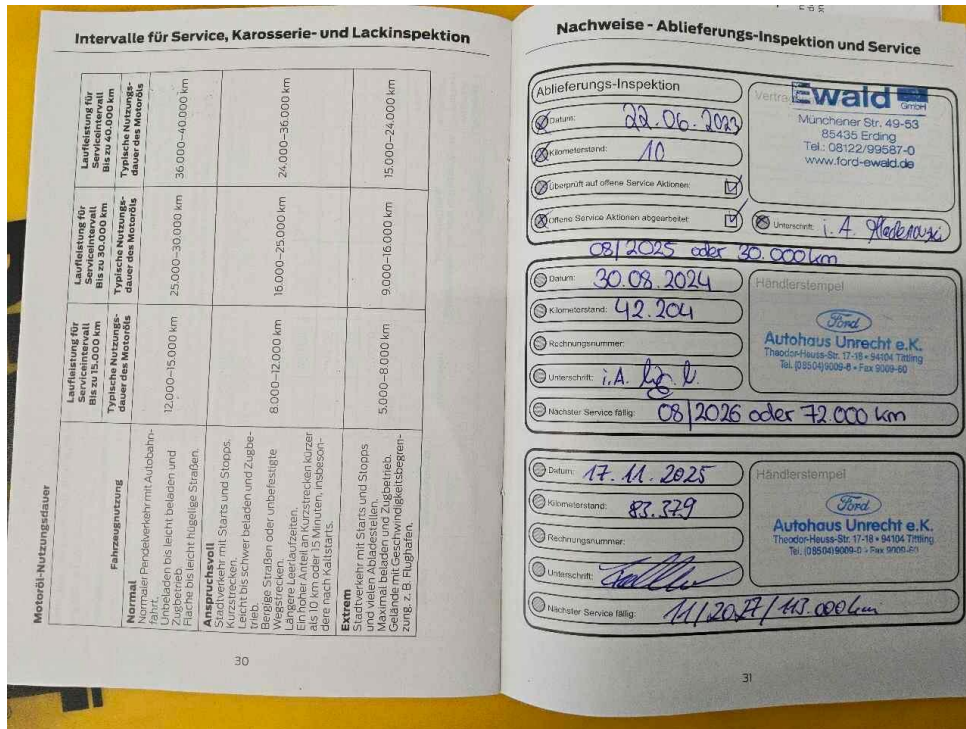 Intervalle für Service, Karosserie- und Lackinspektion
Motoröl-Nutzungsdauer
Fahrzeugnutzung
Laufleistung für Serviceintervall Bis zu 15.000 km
Typische Nutzungsdauer des Motoröls
Laufleistung für Serviceintervall Bis zu 30.000 km
Typische Nutzungsdauer des Motoröls
Laufleistung für Serviceintervall Bis zu 40.000 km
Typische Nutzungsdauer des Motoröls
Normal
Normaler Pendelverkehr mit Autobahn-
fahrt.
Unbeladen bis leicht beladen und
Zugbetrieb.
Flache bis leicht hügelige Straßen.
12.000–15.000 km
25.000–30.000 km
36.000–40.000 km
Anspruchsvoll
Stadtverkehr mit Starts und Stopps.
Kurzstrecken.
Leicht bis schwer beladen und Zugbe-
trieb.
Bergige Straßen oder unbefestigte
Wegstrecken.
Längere Leerlaufzeiten.
Ein hoher Anteil an Kurzstrecken kürzer
als 10 km oder 15 Minuten, insbeson-
dere nach Kaltstarts.
8.000–12.000 km
16.000–25.000 km
24.000–36.000 km
Extrem
Stadtverkehr mit Starts und Stopps
und vielen Abladestellen.
Maximal beladen und Zugbetrieb.
Gelände mit Geschwindigkeitsbegren-
zung, z. B. Flughäfen.
5.000–8.000 km
9.000–16.000 km
15.000–24.000 km
30
Nachweise - Ablieferungs-Inspektion und Service
Ablieferungs-Inspektion
Datum: 22.06.2023
Kilometerstand: 10
Überprüft auf offene Service Aktionen:
Offene Service Aktionen abgearbeitet:
Ewald GmbH
Münchener Str. 49-53
85435 Erding
Tel.: 08122/99587-0
www.ford-ewald.de
Unterschrift: i. A.
08/2025 oder 30.000 km
Datum: 30.08.2024
Kilometerstand: 42.204
Rechnungsnummer:
Unterschrift: i.A.
Nächster Service fällig: 08/2026 oder 72.000 km
Händlerstempel
Ford
Autohaus Unrecht e.K.
Theodor-Heuss-Str. 17-18 • 94104 Tittling
Tel. (08504) 9009-0 • Fax 9009-60
Datum: 17.11.2025
Kilometerstand: 83.379
Rechnungsnummer:
Unterschrift:
Nächster Service fällig: 11/2027/113.000 km
Händlerstempel
Ford
Autohaus Unrecht e.K.
Theodor-Heuss-Str. 17-18 • 94104 Tittling
Tel. (08504) 9009-0 • Fax 9009-60
31